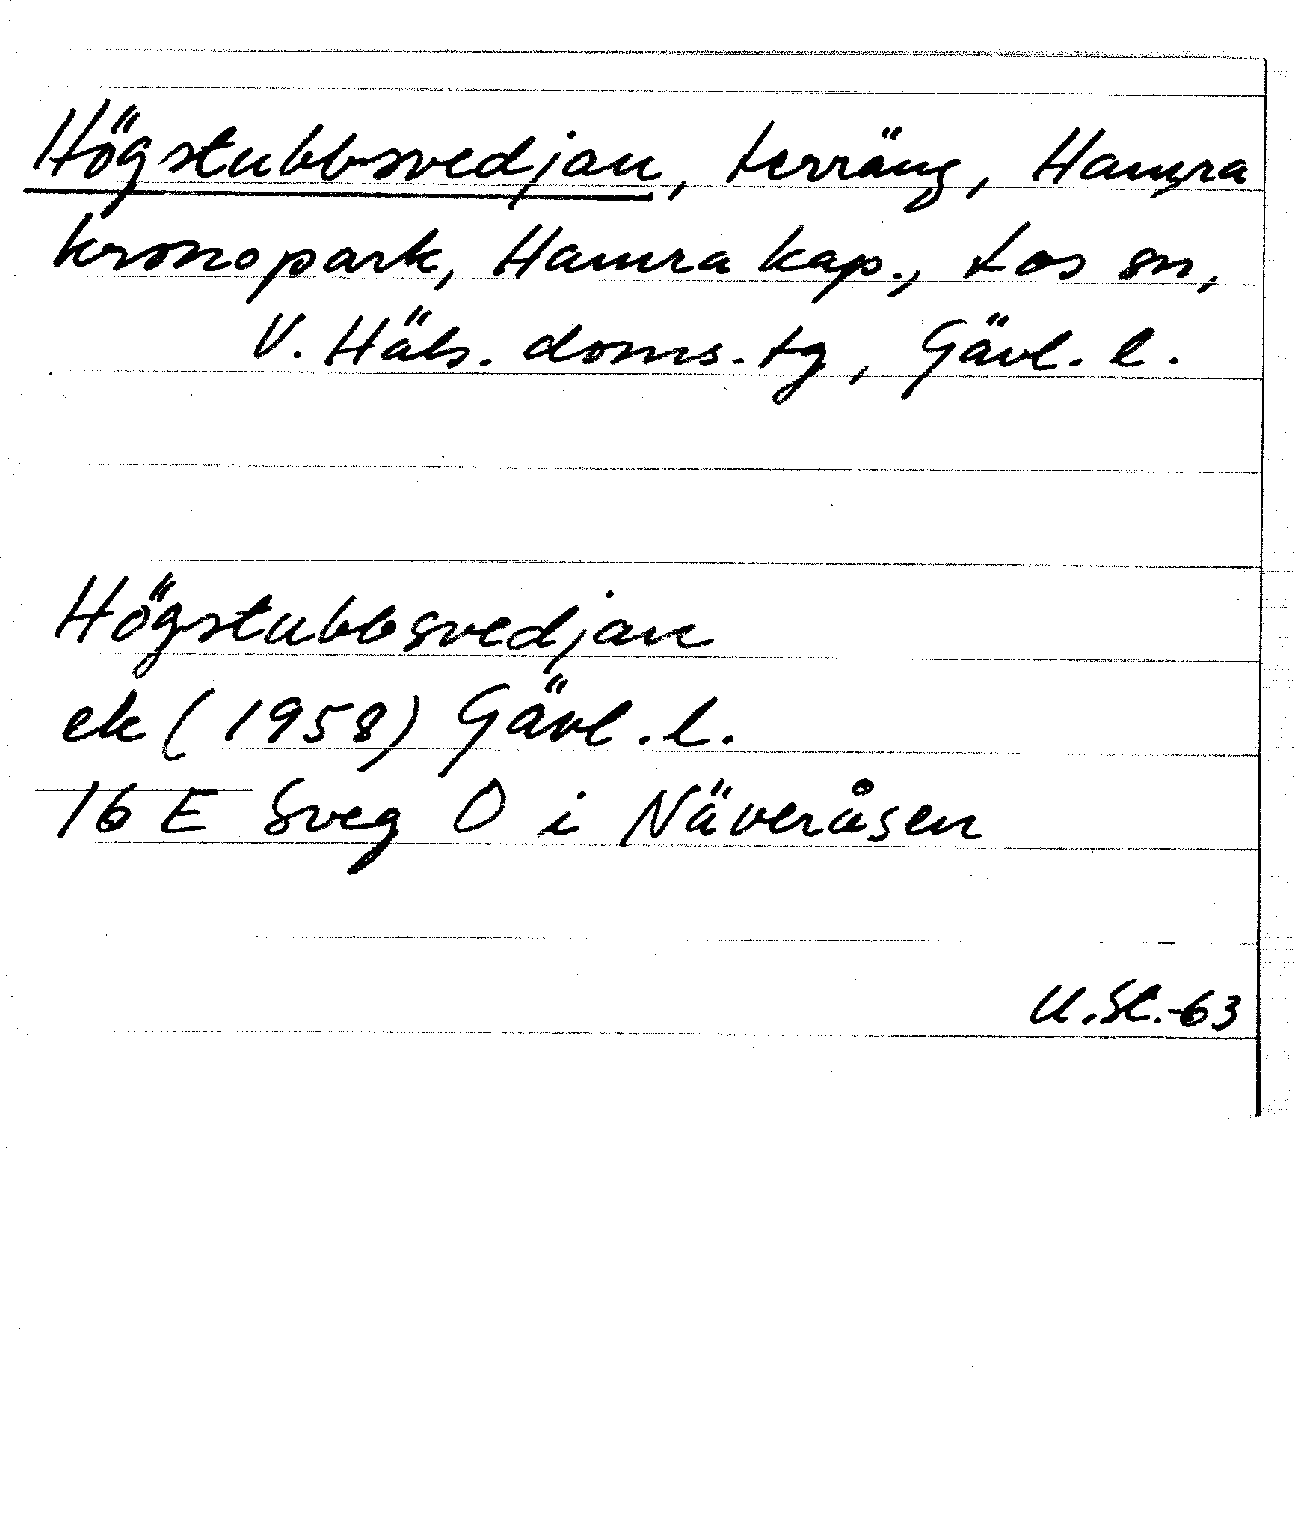 Högstubbsvedjan, terräng, Hamra
kronopark, Hamra kap., Los sn,
V. Häls. doms. tg, Gävl. l.
Högstubbsvedjan
ek (1958) Gävl. l.
16 E Sveg O i Näveråsen
U.Sl.-63